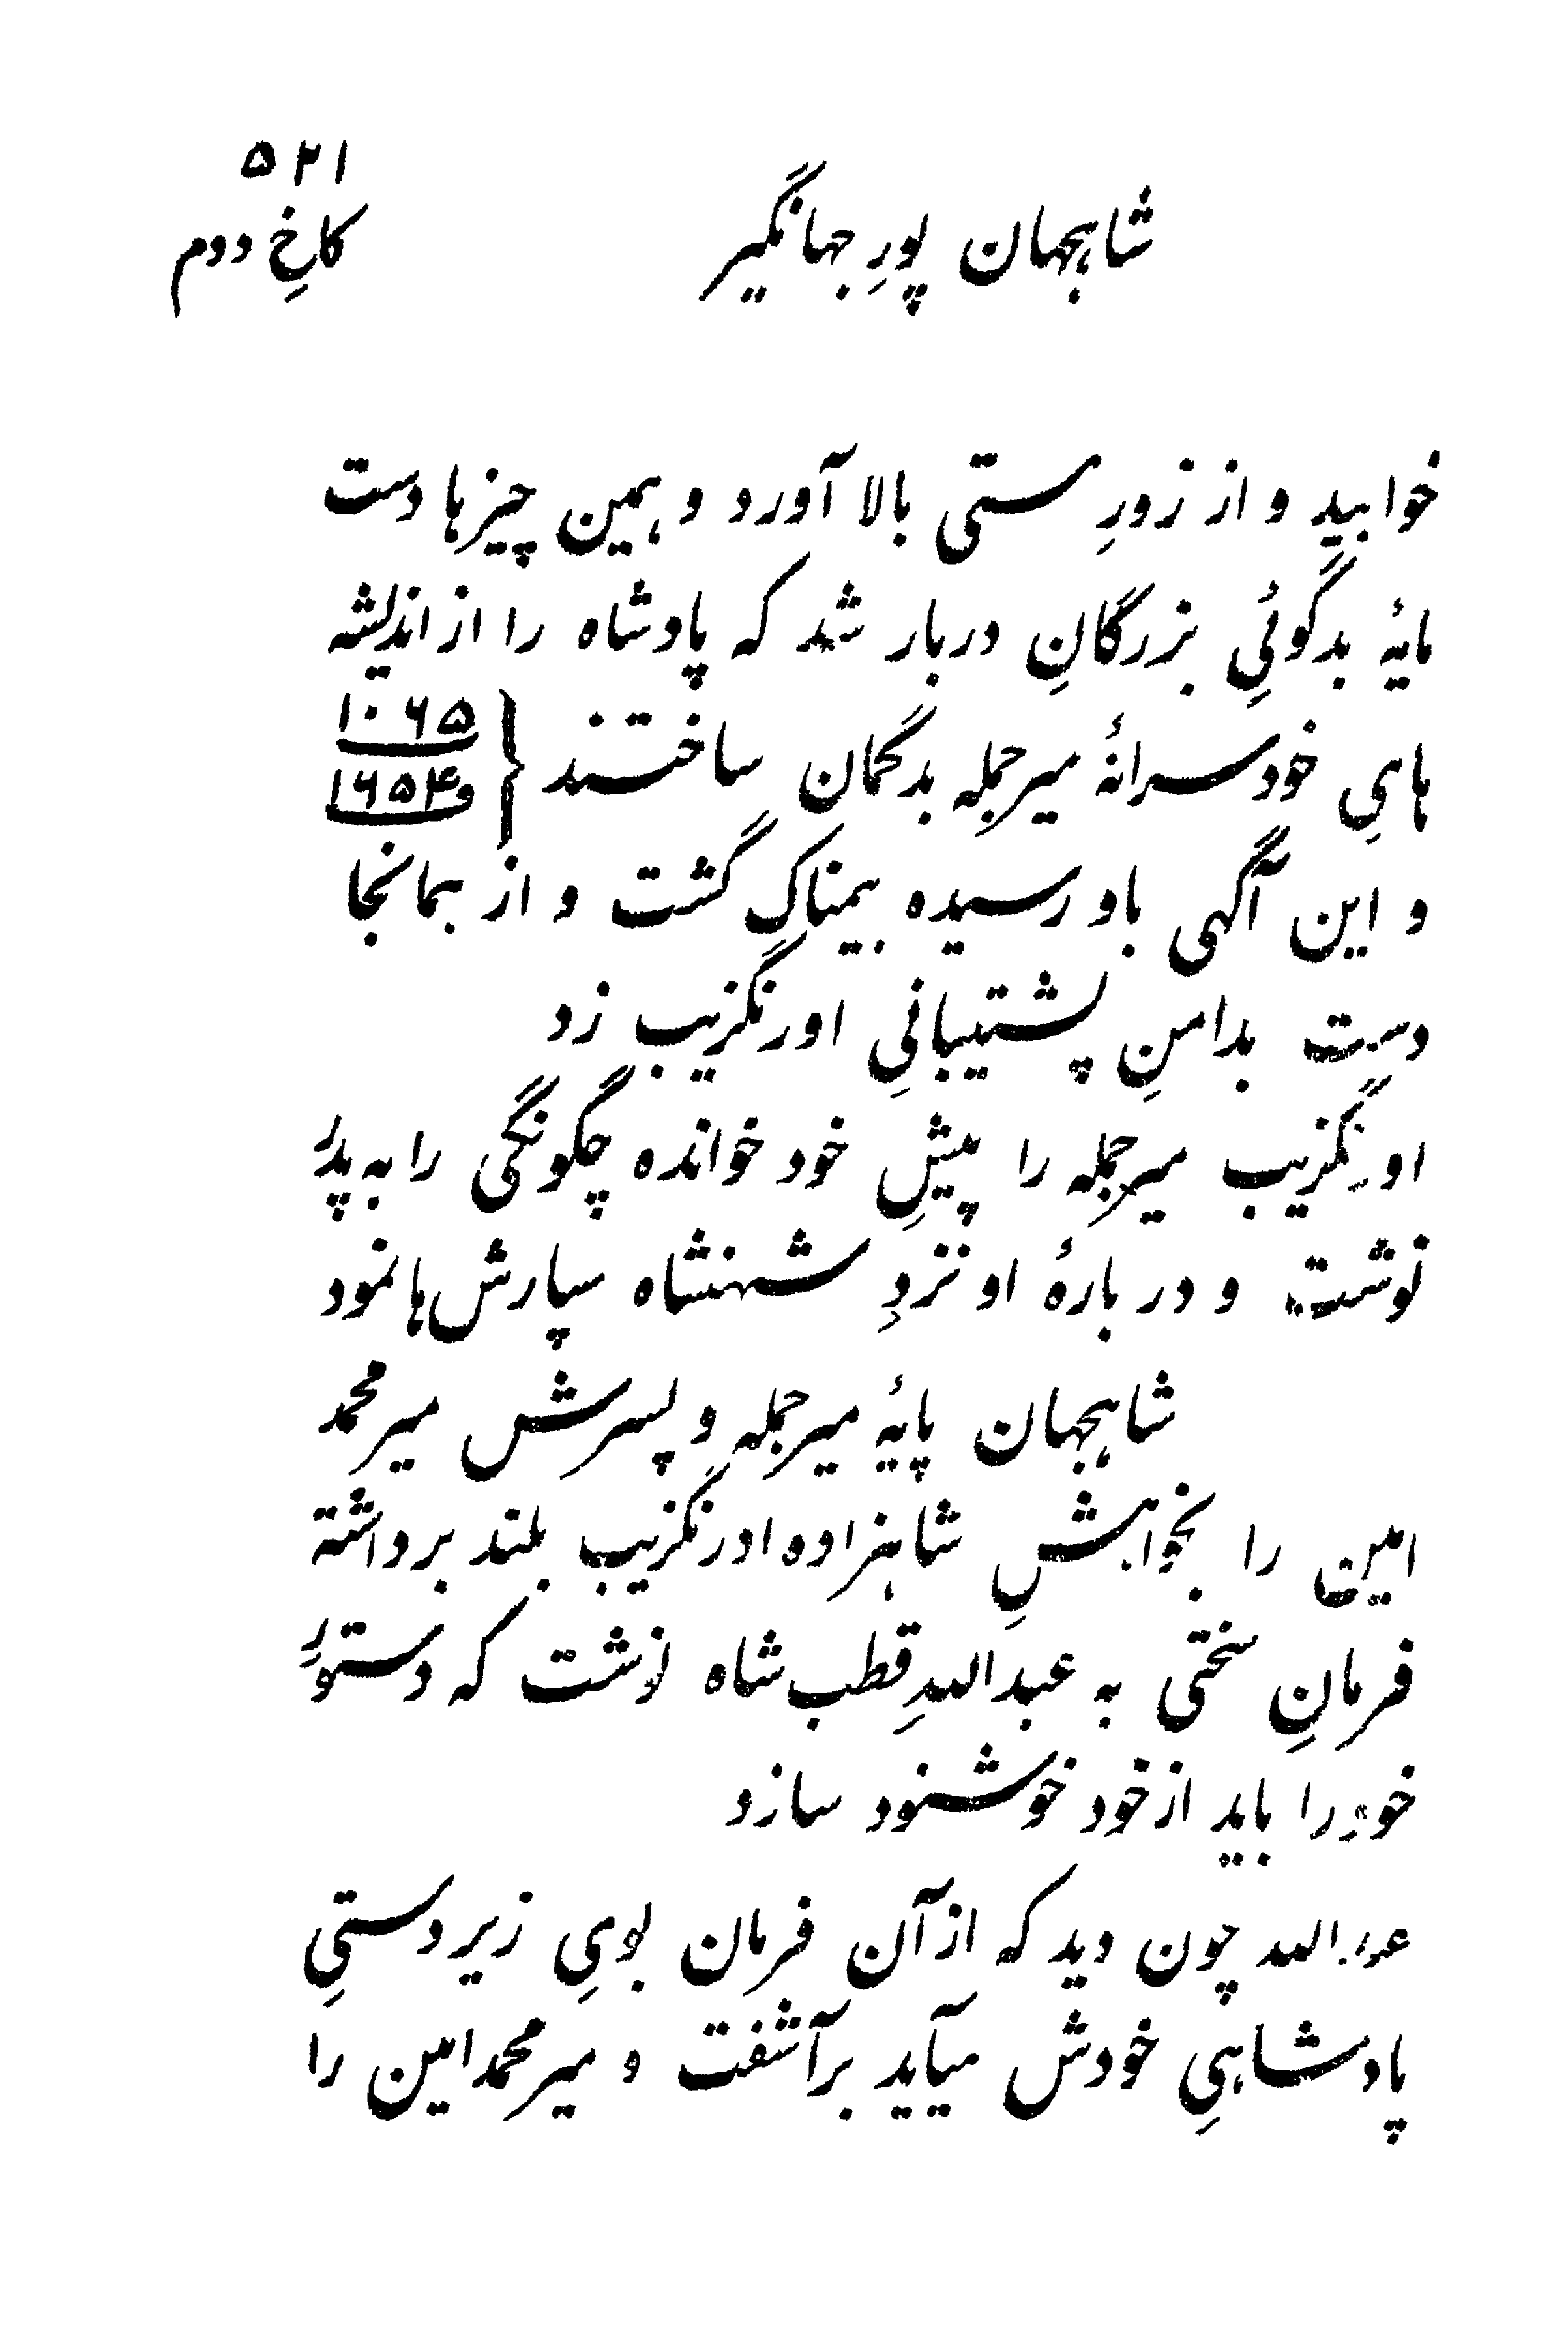 ۵۲۱
شاهجهان پورِ جهانگیر
کاخِ دوم
خوابید و از زورِ مستی بالا آورد و همین چیزها دست
مایهٔ بدگوئیِ بزرگانِ دربار شد که پادشاه را از اندیشه
هایِ خودسرانهٔ میرجمله بدگمان ساختند { ۱۰۶۵
و ۱۶۵۴
و این آگهی باو رسیده بیمناک گشت و از همانجا
دست بدامنِ پشتیبانیِ اورنگزیب زد
اورنگزیب میرجمله را پیشِ خود خوانده چگونگی را به پدر
نوشت و دربارهٔ او نزدِ شهنشاه سپارش‌ها نمود
شاهجهان پایهٔ میرجمله و پسرش میرمحمد
امین را بخواهشِ شاهزاده اورنگزیب بلند برداشته
فرمانِ سختی به عبداللهِ قطب شاه نوشت که دستورِ
خود را باید از خود خوشنود سازد
عبدالله چون دید که از آن فرمان بویِ زیردستیِ
پادشاهیِ خودش میآید برآشفت و میرمحمدامین را